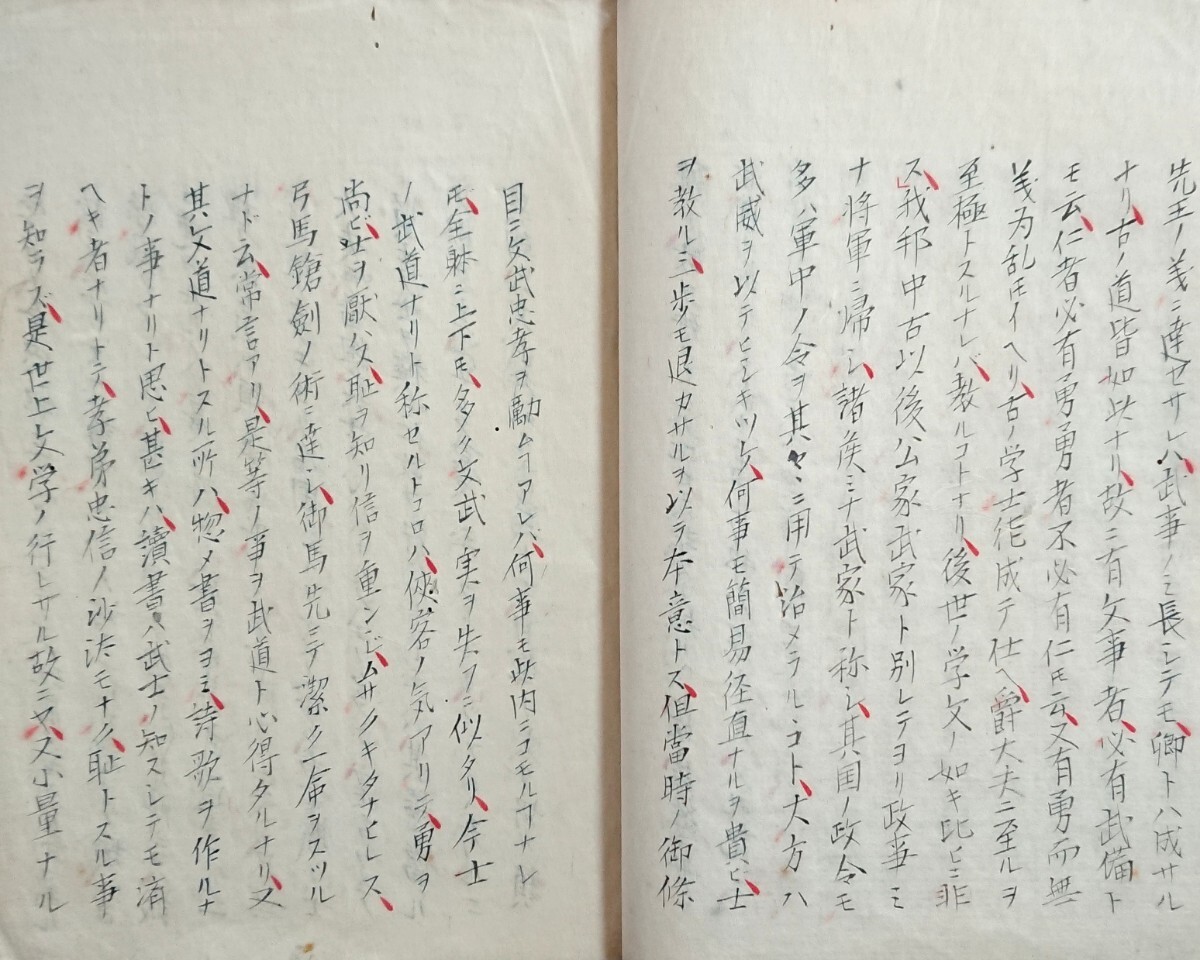 先王ノ義ニ達セサレハ、武事ノミ長シテモ、卿トハ成サル
ナリ、古ノ道皆如此ナリ、故ニ有文事者、必有武備ト
モ云、仁者必有勇勇者不必有仁モ云、又有勇而無
義为乱モイヘリ、古ノ学士徳成テ仕ヘ、爵大夫ニ至ルヲ
至極トスルナレバ、教ルコトナリ、後世ノ学文ノ如キ比ヒニ非
ス、我邦中古以後公家武家ト別レテヨリ政事ミ
ナ将軍ニ帰シ、諸侯ミナ武家ト称シ、其国ノ政令モ
多ハ軍中ノ令ヲ其々ニ用テ治メラルコト、大方ハ
武威ヲ以テヒシキツケ、何事モ簡易径直ナルヲ貴ヒ、士
ヲ教ルニ、歩モ退カサルヲ以テ本意トス、但當時ノ御條
目ニ文武忠孝ヲ勵ムヿアレバ、何事モ此内ニコモルヿナレ
𪜈、全躰ニ上下モ、多ク文武ノ実ヲ失フニ似タリ、今士
ノ武道ナリト称セルトコロハ、侠客ノ気アリテ、勇ヲ
尚ビ、死ヲ厭ハス、恥ヲ知リ信ヲ重ンビ、ムサクキタナヒレス、
弓馬鎗劍ノ術ニ達シ、御馬先ニテ潔ク一命ヲスツル
ナド云、常言アリ、是等ノ事ヲ武道ト心得タルナリ、又
其文道ナリトスル所ハ、惣メ書ヲヨミ、詩歌ヲ作ルナ
トノ事ナリト思ヒ、甚キハ、讀書ハ武士ノ知スシテモ済
ヘキ者ナリトテ、孝弟忠信ノ沙法モナク、恥トスル事
ヲ知ラズ、是、世上文学ノ行レサル故ニヤ、又小量ナル